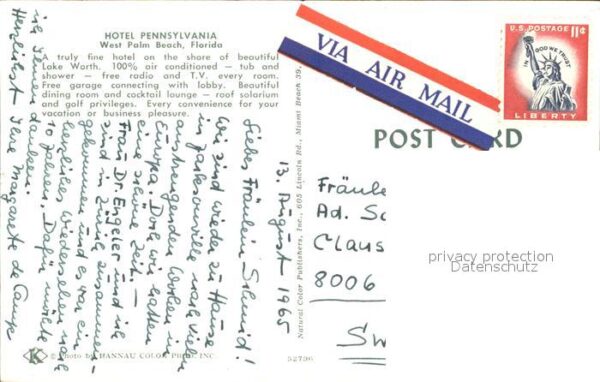 HOTEL PENNSYLVANIA
West Palm Beach, Florida
A truly fine hotel on the share of beautiful
Lake Worth. 100% air conditioned — tub and
shower — free radio and T.V. every room.
Free garage connecting with lobby. Beautiful
dining room and cocktail lounge — roof solarium
and golf privileges. Every convenience for your
vacation or business pleasure.
13. August 1965
Liebes Fräulein Schmid!
Wir sind wieder zu Hause
in Jacksonville nach vielen
anstrengenden Wochen in
Europa. Doch wir hatten
eine schöne Zeit. —
Frau Dr. Engeler und ich
sind in Zürich zusammen-
gekommen und es war ein
herzliches Wiedersehen nach
10 Jahren. Dafür möchte
ich Ihnen danken.
Herzlichst Ihre Margarete de Camp
© Photo by HANNAU COLOR PROD. INC.
52796
Natural Color Publishers, Inc., 605 Lincoln Rd., Miami Beach 39,
VIA AIR MAIL
U.S. POSTAGE 11¢
IN GOD WE TRUST
LIBERTY
POST CARD
Fräule
Ad. Sc
Claus
8006
Sw
privacy protection
Datenschutz
K